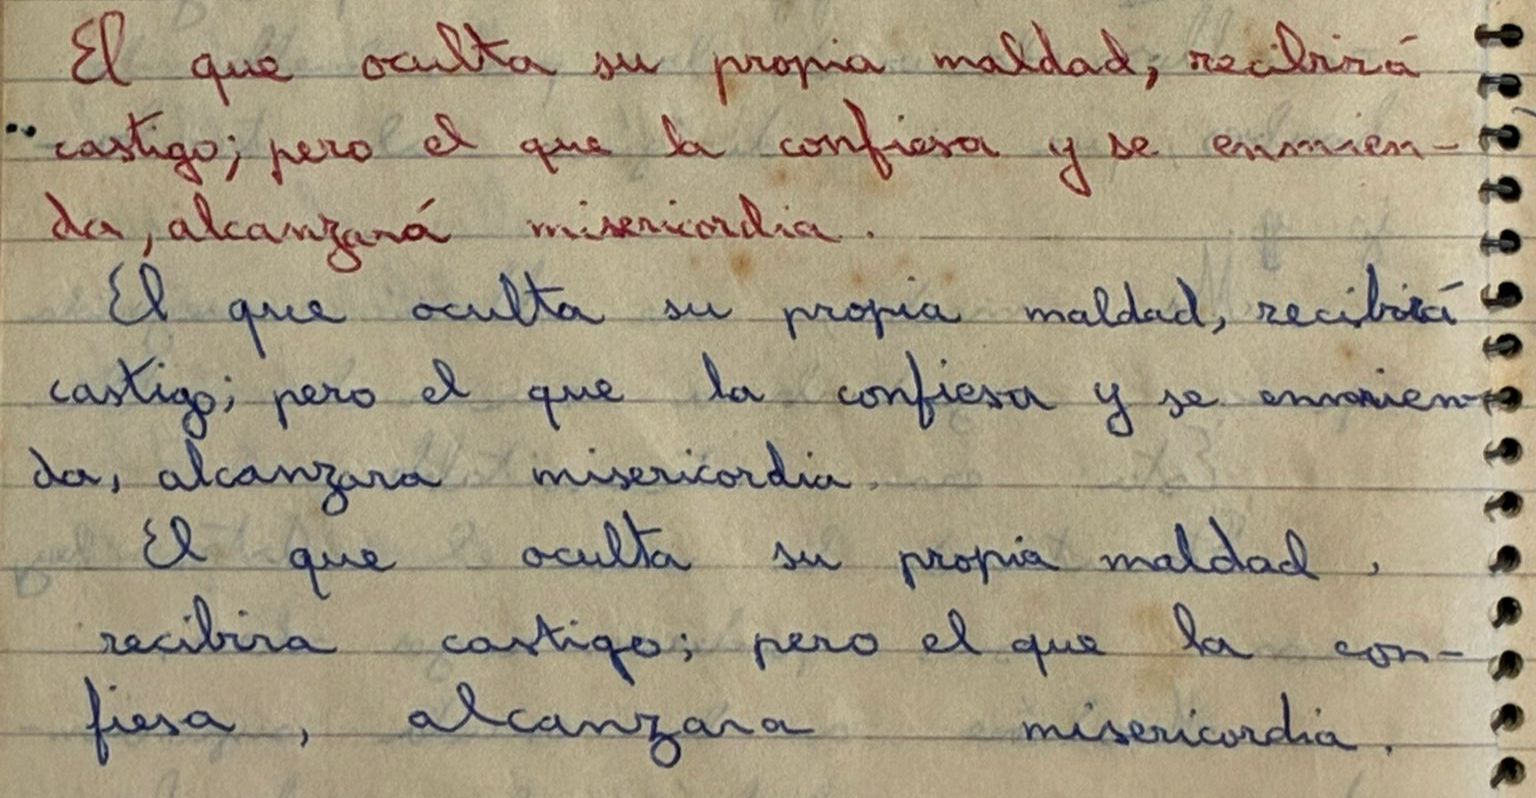 El que oculta su propia maldad, recibirá
castigo; pero el que la confiesa y se enmien-
da, alcanzará misericordia.
El que oculta su propia maldad, recibirá
castigo; pero el que la confiesa y se enmien-
da, alcanzara misericordia.
El que oculta su propia maldad,
recibira castigo; pero el que la con-
fiesa, alcanzara misericordia.